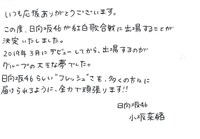 いつも応援ありがとうございます。
この度、日向坂46が紅白歌合戦に出場することが
決定いたしました。
2019年3月にデビューしてから、出場するのが
グループの大きな夢でした。
日向坂46らしい"フレッシュ"さを、多くの方々に
届けられるように、全力で頑張ります!!
日向坂46
小坂菜緒